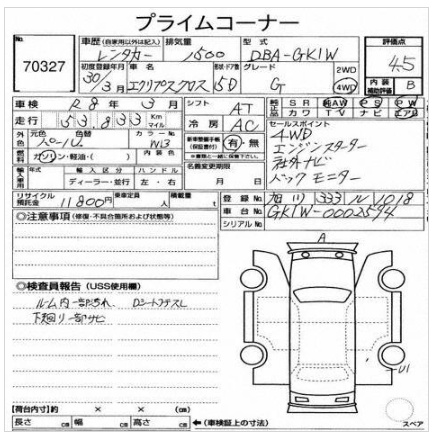 プライムコーナー
No. 70327
車歴 (自家用以外は記入) レンタカー 排気量 1500 型式 DBA-GK1W 評価点 4.5
初度登録年月 30/3月 車名 エクリプスクロス 形状・ドア数 5D グレード G 2WD 4WD 内装補助評価 B
車検 R8年3月 シフト AT 純正品 SR 純AW PS PW
走行 53,833 Km マイル 冷房 AC カワ TV ナビ エアB
外色 元色 パール 色替 カラーNo. W13 有・無 セールスポイント
4WD
燃料 ガソリン・軽油・( ) 内装色 エンジンスターター
社外ナビ
輸入車 年式 輸入区分 ハンドル 名義変更期限 バックモニター
ディーラー・並行 左・右 月 日
リサイクル預託金 11800円 乗車定員 人 積載量 登録No. 旭川 333 ル 1018
◎注意事項 (修復・不具合箇所および状態等) 車台No. GK1W-0002594
シリアルNo.
A
◎検査員報告 (USS使用欄)
ルーム内一部汚れ Dシートフチスレ
下廻り一部サビ
U1
【荷台内寸】約 × × (cm)
長さ cm 幅 cm 高さ cm ←(車検証上の寸法) スペア